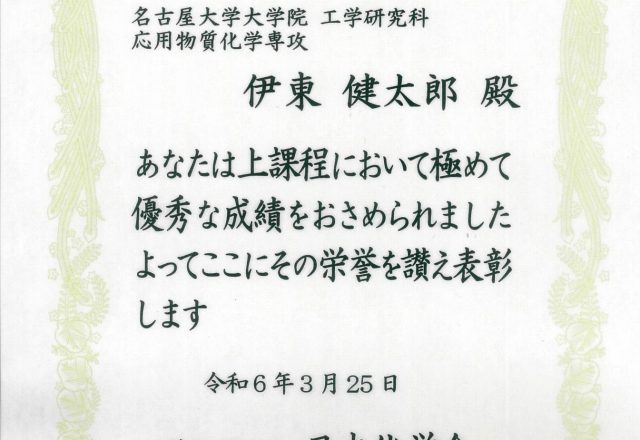 名古屋大学大学院 工学研究科
応用物質化学専攻
伊東 健太郎 殿
あなたは上課程において極めて
優秀な成績をおさめられました
よってここにその栄誉を讃え表彰
します
令和6年3月25日